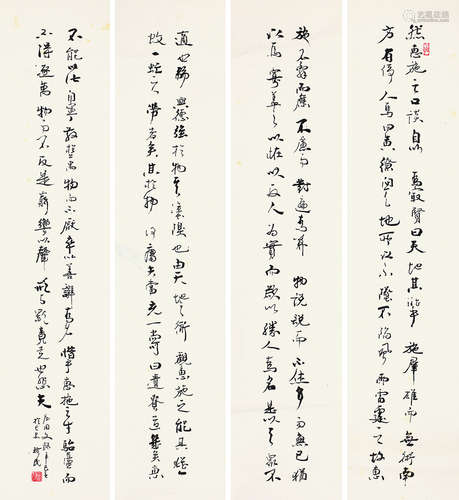 然惠施之口談自以為最賢曰天地其壯乎施雄而無術南
方有倚人焉曰黃繚問天地所以不墜不陷風雨雷霆之故惠
施不辭而應不慮而對遍為萬物說說而不休多而無已猶
以為寡益之以怪以反人為實而欲以勝人為名是以與眾不
適也弱於德強於物其塗隩也由天地之道觀惠施之能其猶一
蚊一虻之勞者矣其於物何庸夫充一尚可曰愈貴道幾矣惠
不能以此自寧散於萬物而不厭卒以善辯為名惜乎惠施之才駘蕩而
不得逐萬物而不反是窮響以聲形與影競走也悲夫